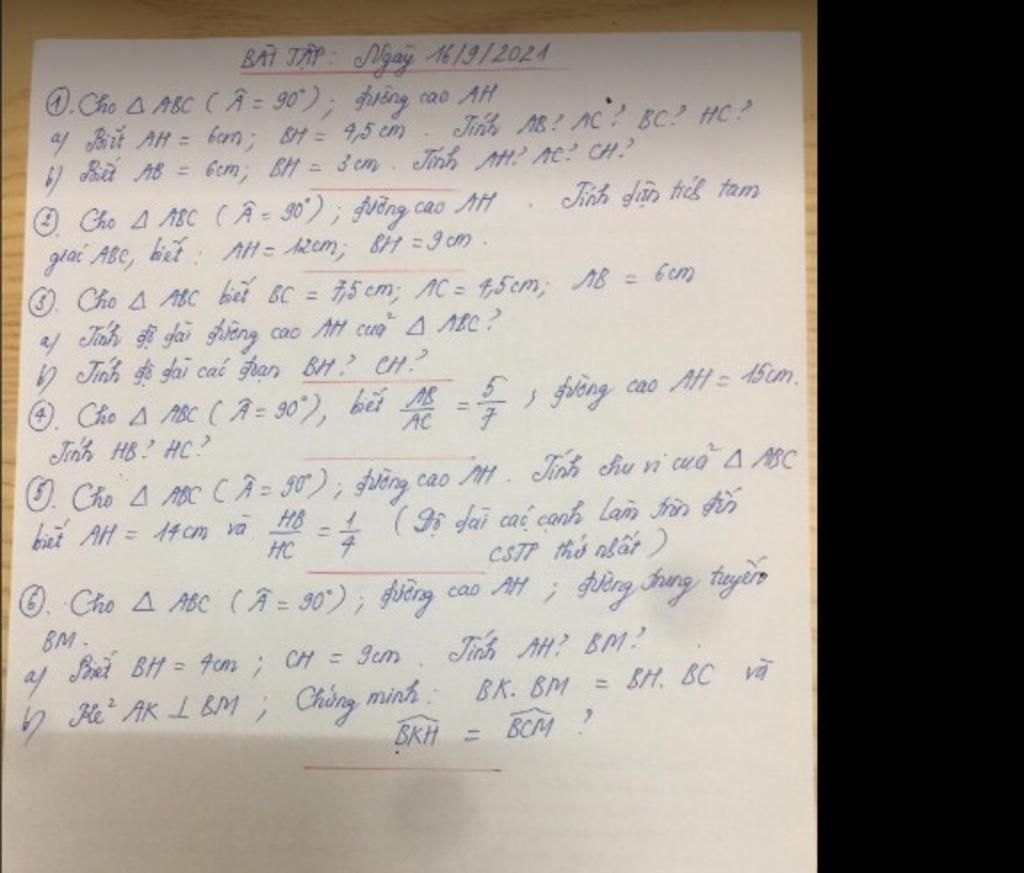 BÀI TẬP: Ngày 16/9/2021
①. Cho Δ ABC ( Â = 90°); đường cao AH
a) Biết AH = 6cm; BH = 4,5cm. Tính AB? AC? BC? HC?
b) Biết AB = 6cm; BH = 3cm. Tính AH? AC? CH?
②. Cho Δ ABC ( Â = 90°); đường cao AH. Tính diện tích tam
giác ABC, biết: AH = 12cm; BH = 9cm.
③. Cho Δ ABC biết BC = 7,5cm; AC = 4,5cm; AB = 6cm
a) Tính độ dài đường cao AH của Δ ABC?
b) Tính độ dài các đoạn BH? CH?
④. Cho Δ ABC ( Â = 90°), biết AB/AC = 5/7; đường cao AH = 15cm.
Tính HB? HC?
⑤. Cho Δ ABC ( Â = 90°); đường cao AH. Tính chu vi của Δ ABC
biết AH = 14cm và HB/HC = 1/4 (Độ dài các cạnh làm tròn đến
CSTP thứ nhất)
⑥. Cho Δ ABC ( Â = 90°); đường cao AH; đường trung tuyến
BM.
a) Biết BH = 4cm; CH = 9cm. Tính AH? BM?
b) Kẻ AK ⊥ BM; Chứng minh: BK. BM = BH. BC và
B̂KH = B̂CM ?